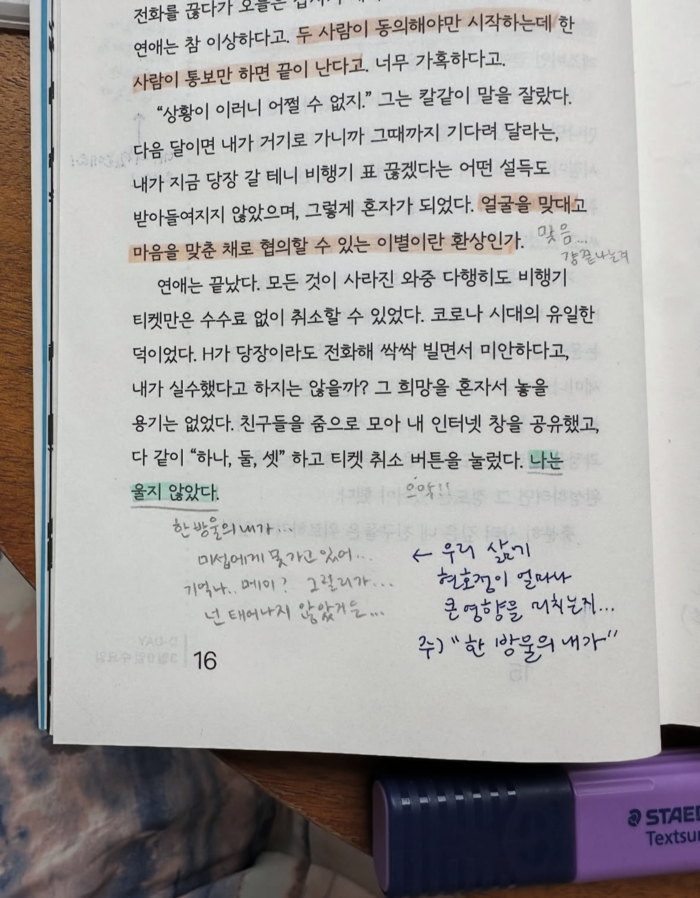 전화를 끊다가 오늘은
연애는 참 이상하다고. 두 사람이 동의해야만 시작하는데 한
사람이 통보만 하면 끝이 난다고. 너무 가혹하다고.
“상황이 이러니 어쩔 수 없지.” 그는 칼같이 말을 잘랐다.
다음 달이면 내가 거기로 가니까 그때까지 기다려 달라는,
내가 지금 당장 갈 테니 비행기 표 끊겠다는 어떤 설득도
받아들여지지 않았으며, 그렇게 혼자가 되었다. 얼굴을 맞대고
마음을 맞춘 채로 협의할 수 있는 이별이란 환상인가.
맞음...
걍 끝나는겨
연애는 끝났다. 모든 것이 사라진 와중 다행히도 비행기
티켓만은 수수료 없이 취소할 수 있었다. 코로나 시대의 유일한
덕이었다. H가 당장이라도 전화해 싹싹 빌면서 미안하다고,
내가 실수했다고 하지는 않을까? 그 희망을 혼자서 놓을
용기는 없었다. 친구들을 줌으로 모아 내 인터넷 창을 공유했고,
다 같이 “하나, 둘, 셋” 하고 티켓 취소 버튼을 눌렀다. 나는
울지 않았다.
으악!!
한 방울의 내가...
미섭에게 못가고 있어...
기억나.. 메이? 그럴리가...
넌 태어나지 않았거든...
← 우리 삶에
현호정이 얼마나
큰 영향을 미치는지...
주) “한 방울의 내가”
16
STAED
Textsur